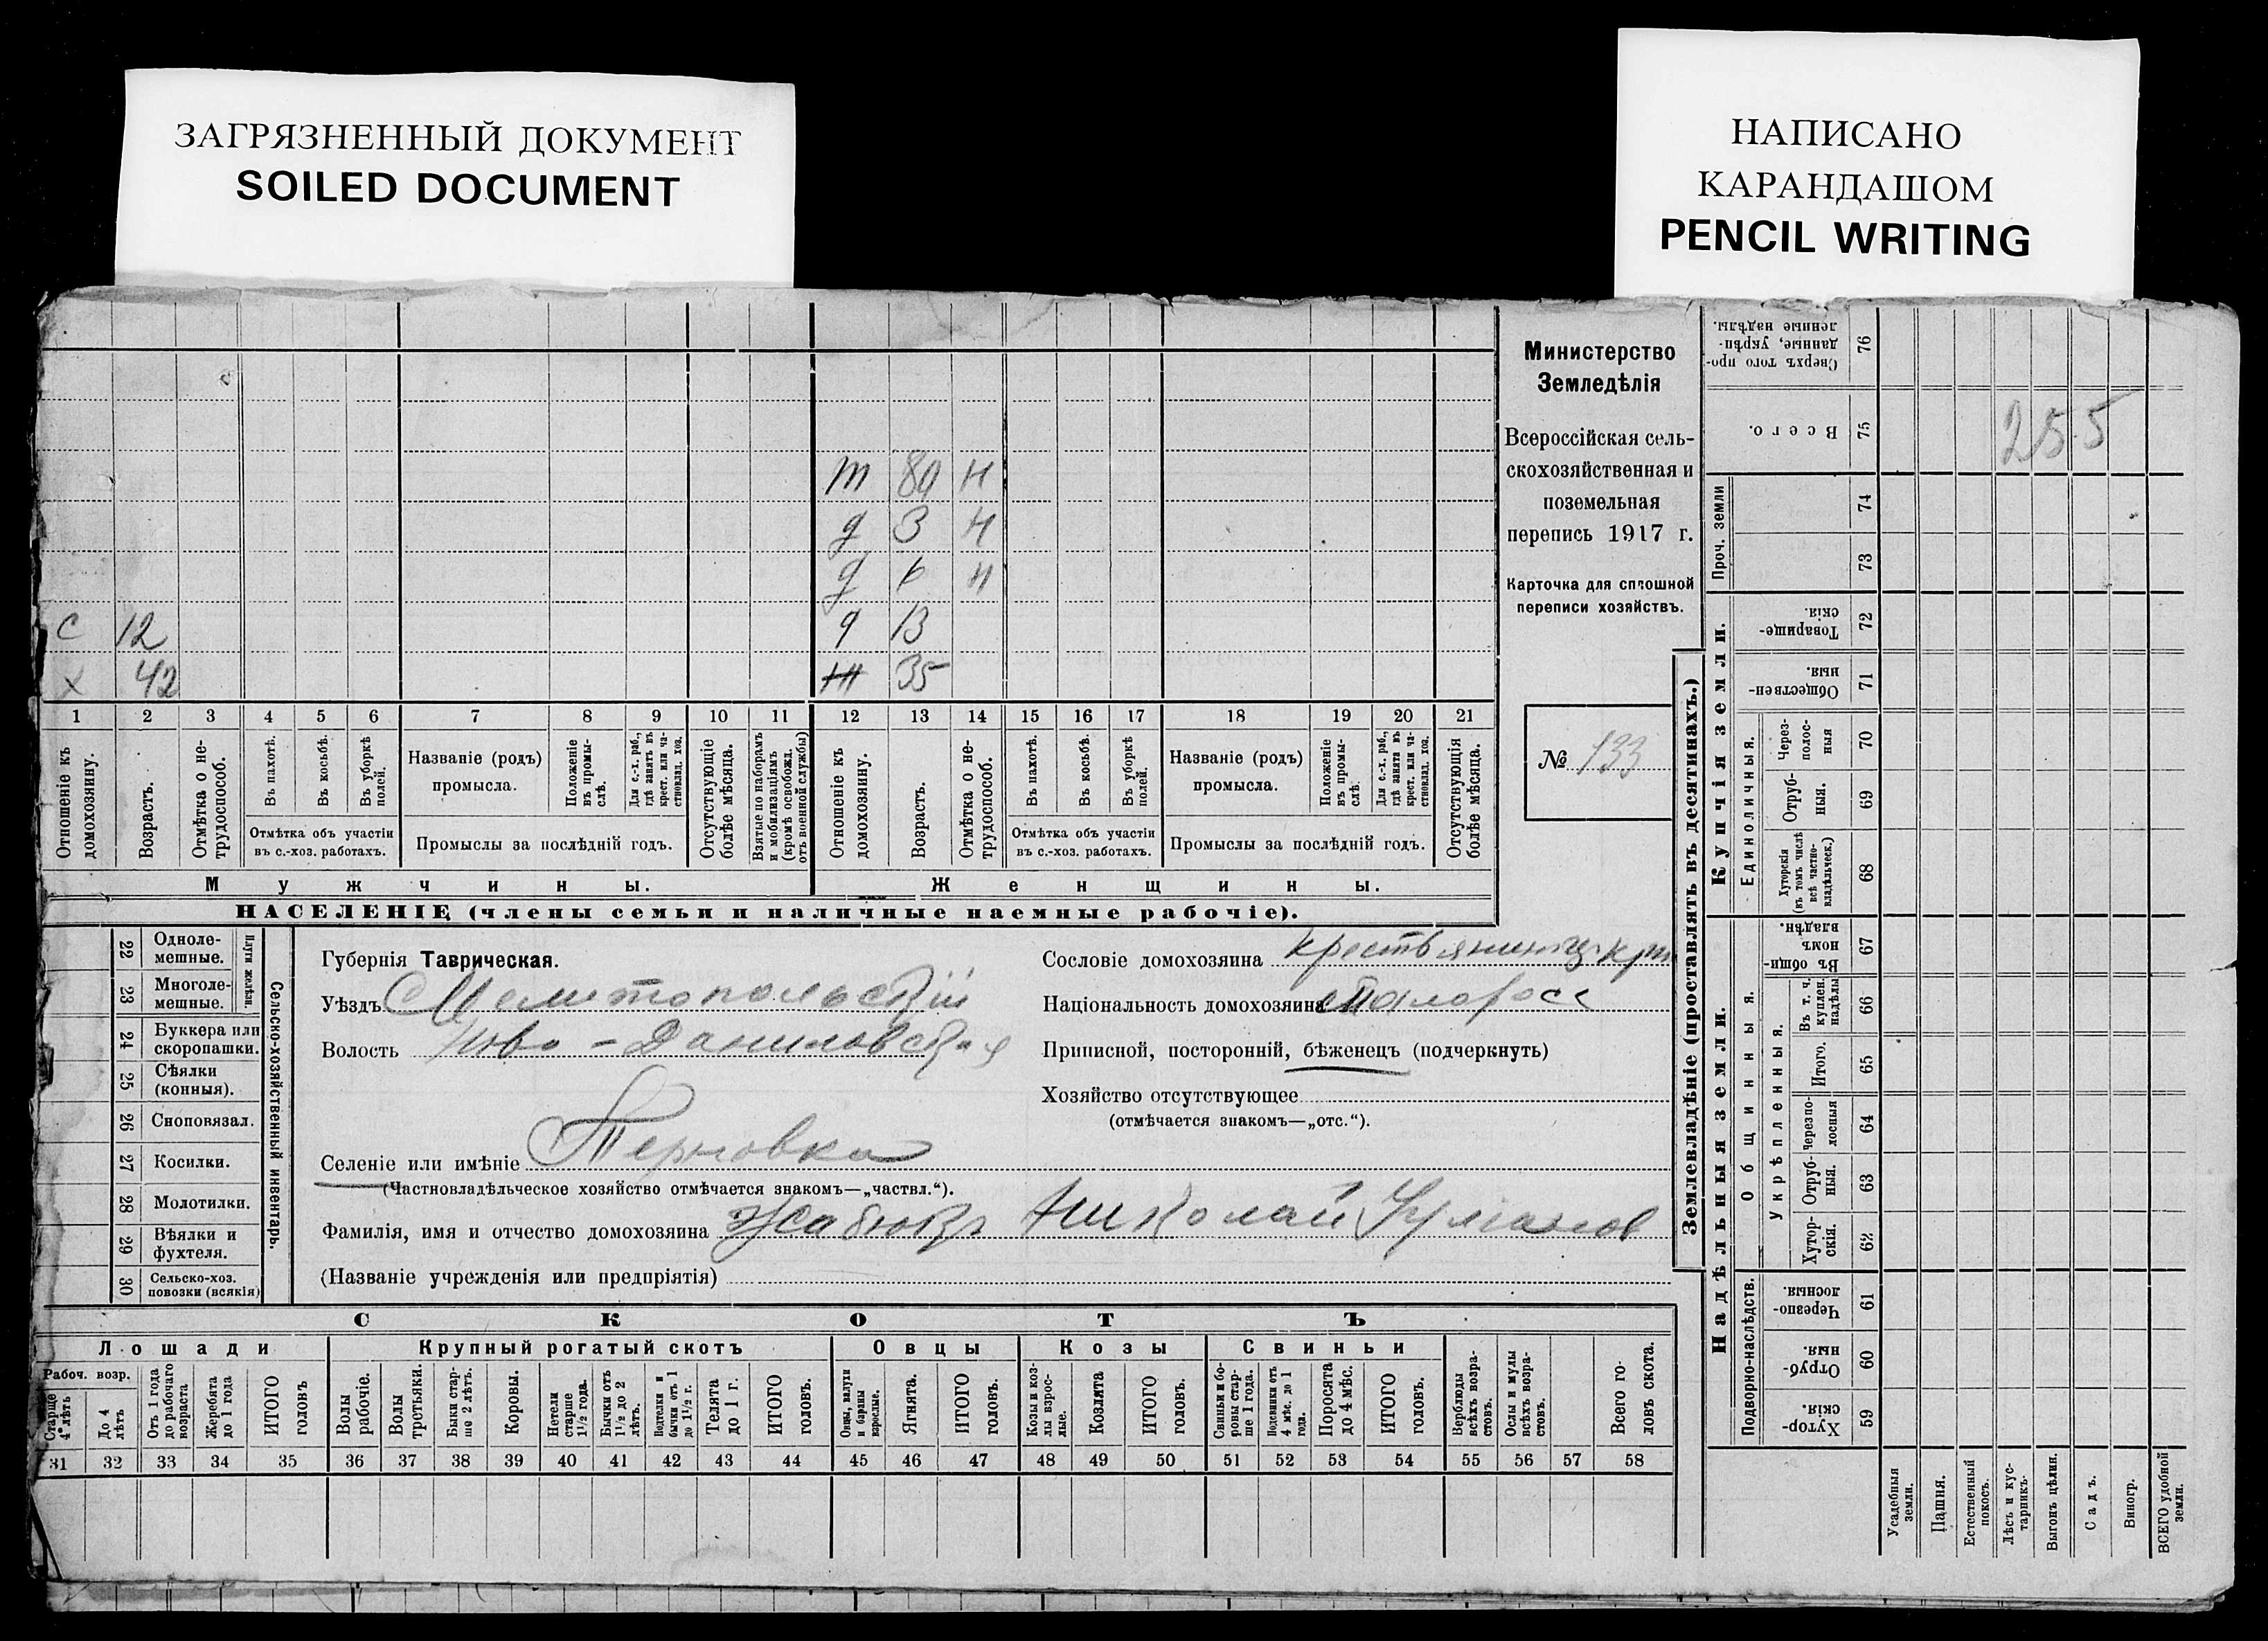 ЗАГРЯЗНЕННЫЙ ДОКУМЕНТ
SOILED DOCUMENT
НАПИСАНО
КАРАНДАШОМ
PENCIL WRITING
m 80 н
д 3 н
д 6 н
с 12 д 13
х 42 ж 35
1 2 3 4 5 6 7 8 9 10 11 12 13 14 15 16 17 18 19 20 21
Отношеніе къ домохозяину.
Возрастъ.
Отмѣтка о нетрудоспособ.
Въ пахотѣ.
Въ косьбѣ.
Въ уборкѣ полей.
Отмѣтка объ участіи
въ с.-хоз. работахъ.
Названіе (родъ)
промысла.
Положеніе въ промыслѣ.
Для с.-х. раб., гдѣ занятъ въ крест. или частновлад. хоз.
Промыслы за послѣдній годъ.
Отсутствующіе болѣе мѣсяца.
Взятые по наборамъ и мобилизаціямъ (кромѣ освобожд. отъ военной службы)
Отношеніе къ домохозяину.
Возрастъ.
Отмѣтка о нетрудоспособ.
Въ пахотѣ.
Въ косьбѣ.
Въ уборкѣ полей.
Отмѣтка объ участіи
въ с.-хоз. работахъ.
Названіе (родъ)
промысла.
Положеніе въ промыслѣ.
Для с.-х. раб., гдѣ занята въ крест. или частновлад. хоз.
Промыслы за послѣдній годъ.
Отсутствующія болѣе мѣсяца.
Мужчины. Женщины.
НАСЕЛЕНІЕ (члены семьи и наличные наемные рабочіе).
Министерство
Земледѣлія
Всероссійская сель-
скохозяйственная и
поземельная
перепись 1917 г.
Карточка для сплошной
переписи хозяйствъ.
№ 133
22 Одноле-
мешные.
23 Многоле-
мешные.
Плуги желѣзн.
24 Буккера или
скоропашки.
25 Сѣялки
(конныя).
26 Сноповязал.
27 Косилки.
28 Молотилки.
29 Вѣялки и
фухтеля.
30 Сельско-хоз.
повозки (всякія)
Сельско-хозяйственный инвентарь.
Губернія Таврическая.
Уѣздъ Мелитопольскій
Волость Ново-Даниловская
Селеніе или имѣніе Терновка
(Частновладѣльческое хозяйство отмѣчается знакомъ—„частвл.“).
Сословіе домохозяина крестьянинъ
Національность домохозяина Малоросс
Приписной, посторонній, бѣженецъ (подчеркнуть)
Хозяйство отсутствующее
(отмѣчается знакомъ—„отс.“).
Фамилія, имя и отчество домохозяина Николай
(Названіе учрежденія или предпріятія)
СКОТЪ
Лошади Крупный рогатый скотъ Овцы Козы Свиньи
Рабоч. возр.
Старше 4 лѣтъ
До 4 лѣтъ
Отъ 1 года до рабочаго возраста
Жеребята до 1 года
ИТОГО головъ
Волы рабочіе.
Волы третьяки.
Быки старше 2 лѣтъ.
Коровы.
Нетели старше 1½ года.
Бычки отъ 1½ до 2 лѣтъ.
Подтелки и бычки отъ 1 до 1½ г.
Телята до 1 г.
ИТОГО головъ.
Овцы, валухи и бараны взрослые.
Ягнята.
ИТОГО головъ.
Козы и козлы взрослые.
Козлята
ИТОГО головъ.
Свиньи и боровы старше 1 года.
Подсвинки отъ 4 мѣс. до 1 года.
Поросята до 4 мѣс.
ИТОГО головъ.
Верблюды всѣхъ возрастовъ.
Ослы и мулы всѣхъ возрастовъ.
Всего головъ скота.
31 32 33 34 35 36 37 38 39 40 41 42 43 44 45 46 47 48 49 50 51 52 53 54 55 56 57 58
Землевладѣніе (проставлять въ десятинахъ.)
Надѣльныя земли. Купчія земли.
Подворно-наслѣдств. Общинныя. Единоличныя. Проч. земли
Укрѣпленныя.
Сверхъ того проданные, укрѣпленные надѣлы. 76
Всего. 75 255
74
73
Товарищескія. 72
Общественныя 71
Черезполосныя 70
Отрубныя. 69
Хуторскія (въ томъ числѣ всѣ частновладѣльческ.) 68
Въ общинномъ владѣн. 67
Въ т. ч. куплен. надѣлы 66
Итого. 65
Черезполосныя 64
Отрубныя. 63
Хуторскія. 62
Черезполосныя. 61
Отрубныя. 60
Хуторскія. 59
Усадебныя земли.
Пашня.
Естественный покосъ.
Лѣсъ и кустарникъ.
Выгонъ цѣлин.
Садъ.
Виногр.
ВСЕГО удобной земли.